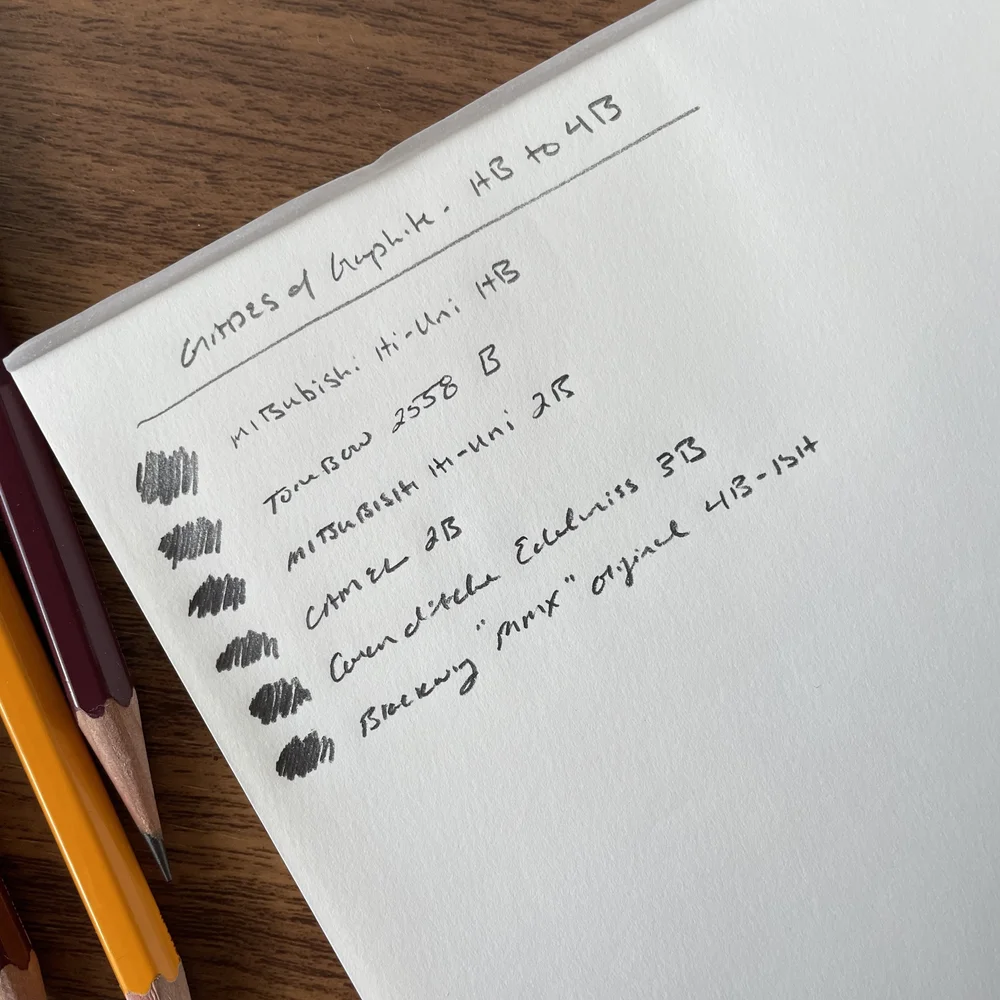 GRADES of Graphite - HB to 4B
MITSubishi Hi-Uni HB
TOMBOW 2558 B
MITSUBISHI Hi-Uni 2B
CAMEL 2B
Caran d'Ache Edelweiss 3B
Blackwing "MMX" original 4B-ish